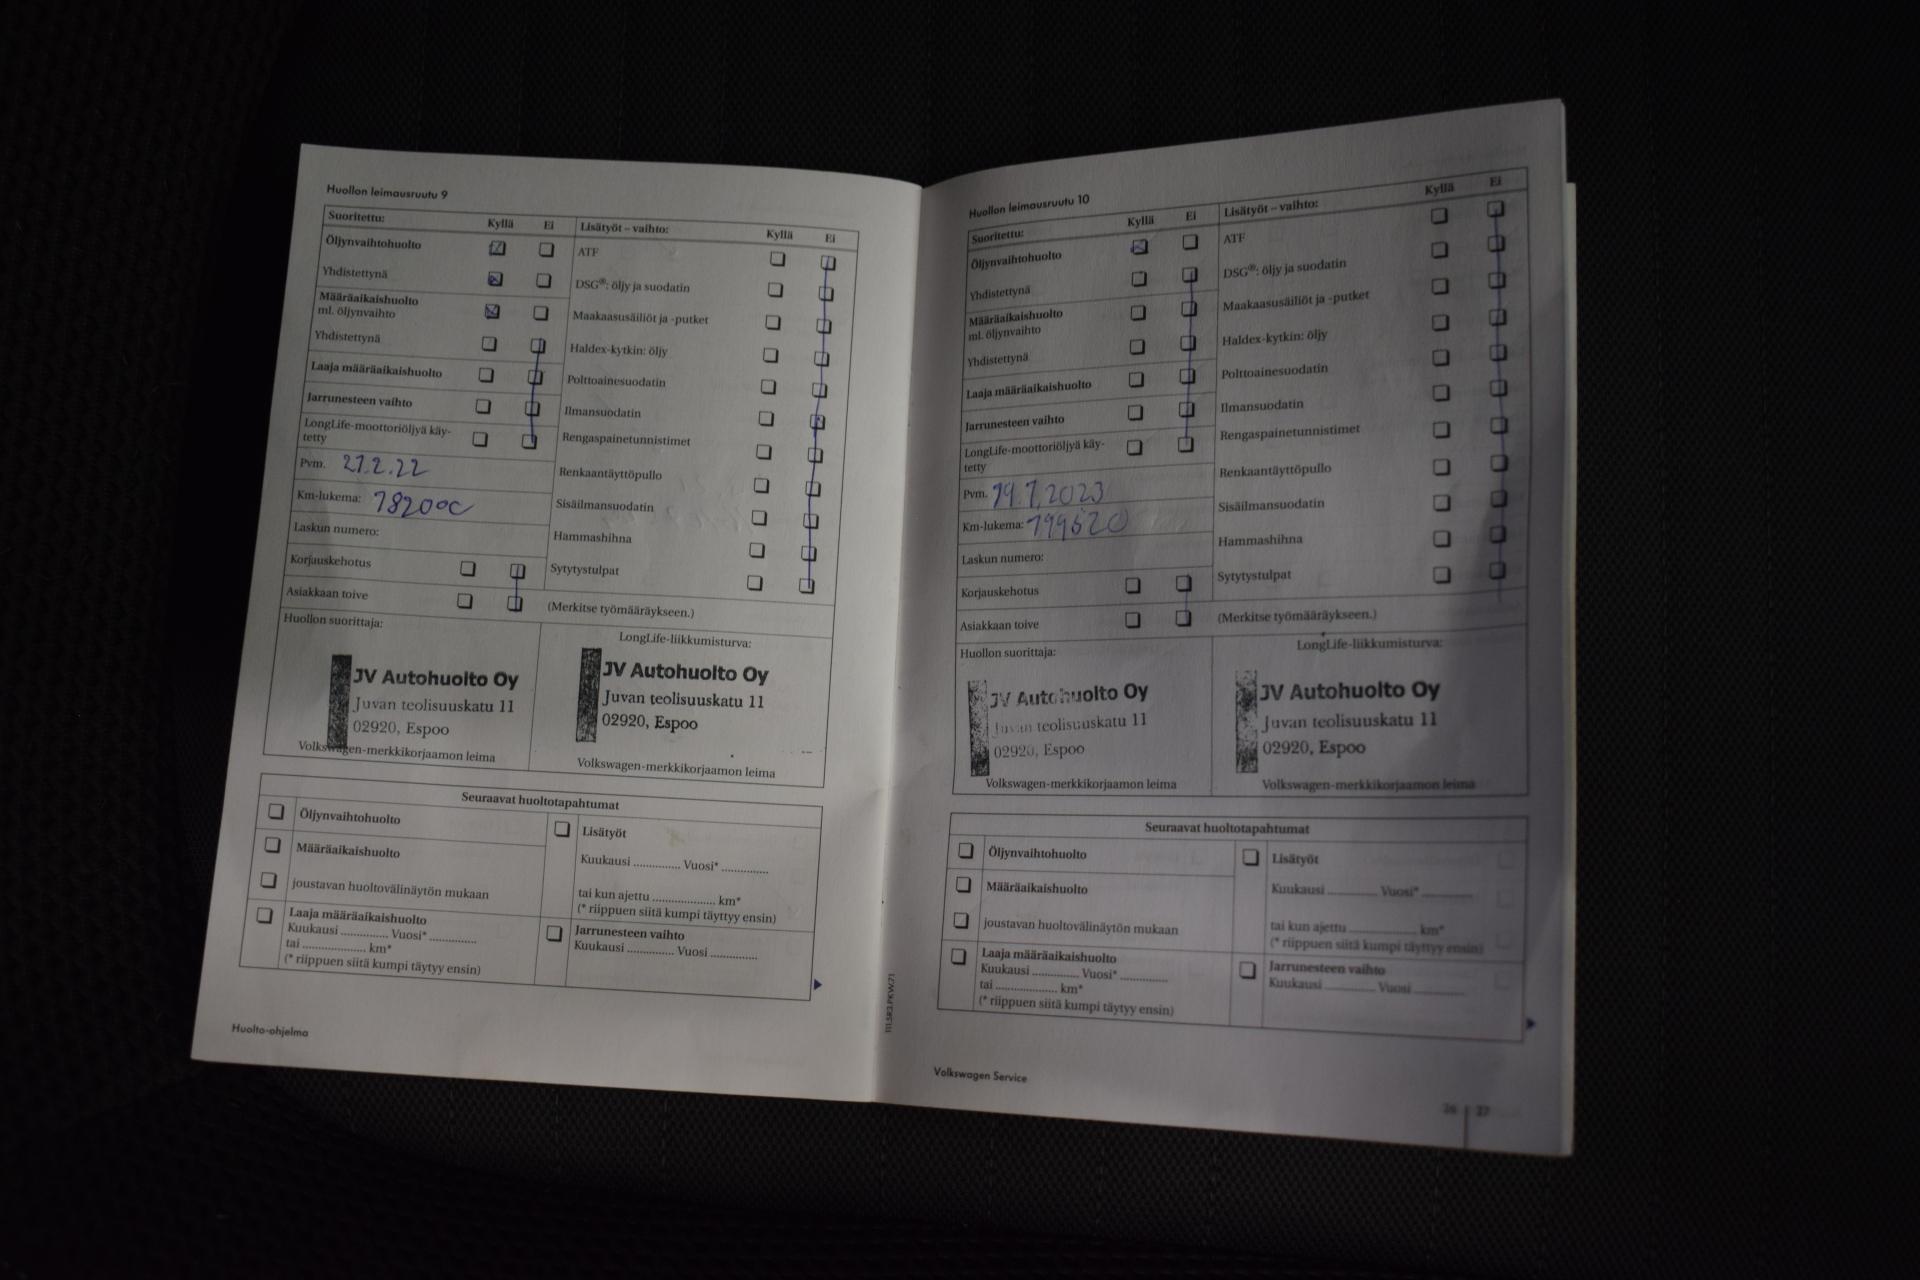 Huollon leimausruutu 9
Suoritettu: Kyllä Ei
Öljynvaihtohuolto
Yhdistettynä
Määräaikaishuolto
ml. öljynvaihto
Yhdistettynä
Laaja määräaikaishuolto
Jarrunesteen vaihto
LongLife-moottoriöljyä käy-
tetty
Pvm. 21.2.22
Km-lukema: 182000
Laskun numero:
Korjauskehotus
Asiakkaan toive
Lisätyöt – vaihto: Kyllä Ei
ATF
DSG®: öljy ja suodatin
Maakaasusäiliöt ja -putket
Haldex-kytkin: öljy
Polttoainesuodatin
Ilmansuodatin
Rengaspainetunnistimet
Renkaantäyttöpullo
Sisäilmansuodatin
Hammashihna
Sytytystulpat
(Merkitse työmääräykseen.)
Huollon suorittaja:
JV Autohuolto Oy
Juvan teolisuuskatu 11
02920, Espoo
Volkswagen-merkkikorjaamon leima
LongLife-liikkumisturva:
JV Autohuolto Oy
Juvan teolisuuskatu 11
02920, Espoo
Volkswagen-merkkikorjaamon leima
Seuraavat huoltotapahtumat
Öljynvaihtohuolto
Määräaikaishuolto
joustavan huoltovälinäytön mukaan
Laaja määräaikaishuolto
Kuukausi .............. Vuosi* ..............
tai ................... km*
(* riippuen siitä kumpi täytyy ensin)
Lisätyöt
Kuukausi .............. Vuosi* ..............
tai kun ajettu ................... km*
(* riippuen siitä kumpi täyttyy ensin)
Jarrunesteen vaihto
Kuukausi .............. Vuosi ..............
Huolto-ohjelma
111.5R3.PKW.71
Huollon leimausruutu 10
Suoritettu: Kyllä Ei
Öljynvaihtohuolto
Yhdistettynä
Määräaikaishuolto
ml. öljynvaihto
Yhdistettynä
Laaja määräaikaishuolto
Jarrunesteen vaihto
LongLife-moottoriöljyä käy-
tetty
Pvm. 19.7.2023
Km-lukema: 199520
Laskun numero:
Korjauskehotus
Asiakkaan toive
Lisätyöt – vaihto: Kyllä Ei
ATF
DSG®: öljy ja suodatin
Maakaasusäiliöt ja -putket
Haldex-kytkin: öljy
Polttoainesuodatin
Ilmansuodatin
Rengaspainetunnistimet
Renkaantäyttöpullo
Sisäilmansuodatin
Hammashihna
Sytytystulpat
(Merkitse työmääräykseen.)
Huollon suorittaja:
JV Autohuolto Oy
Juvan teolisuuskatu 11
02920, Espoo
Volkswagen-merkkikorjaamon leima
LongLife-liikkumisturva:
JV Autohuolto Oy
Juvan teolisuuskatu 11
02920, Espoo
Volkswagen-merkkikorjaamon leima
Seuraavat huoltotapahtumat
Öljynvaihtohuolto
Määräaikaishuolto
joustavan huoltovälinäytön mukaan
Laaja määräaikaishuolto
Kuukausi .............. Vuosi* ..............
tai ................... km*
(* riippuen siitä kumpi täytyy ensin)
Lisätyöt
Kuukausi .............. Vuosi* ..............
tai kun ajettu ................... km*
(* riippuen siitä kumpi täyttyy ensin)
Jarrunesteen vaihto
Kuukausi .............. Vuosi ..............
Volkswagen Service
26 | 27